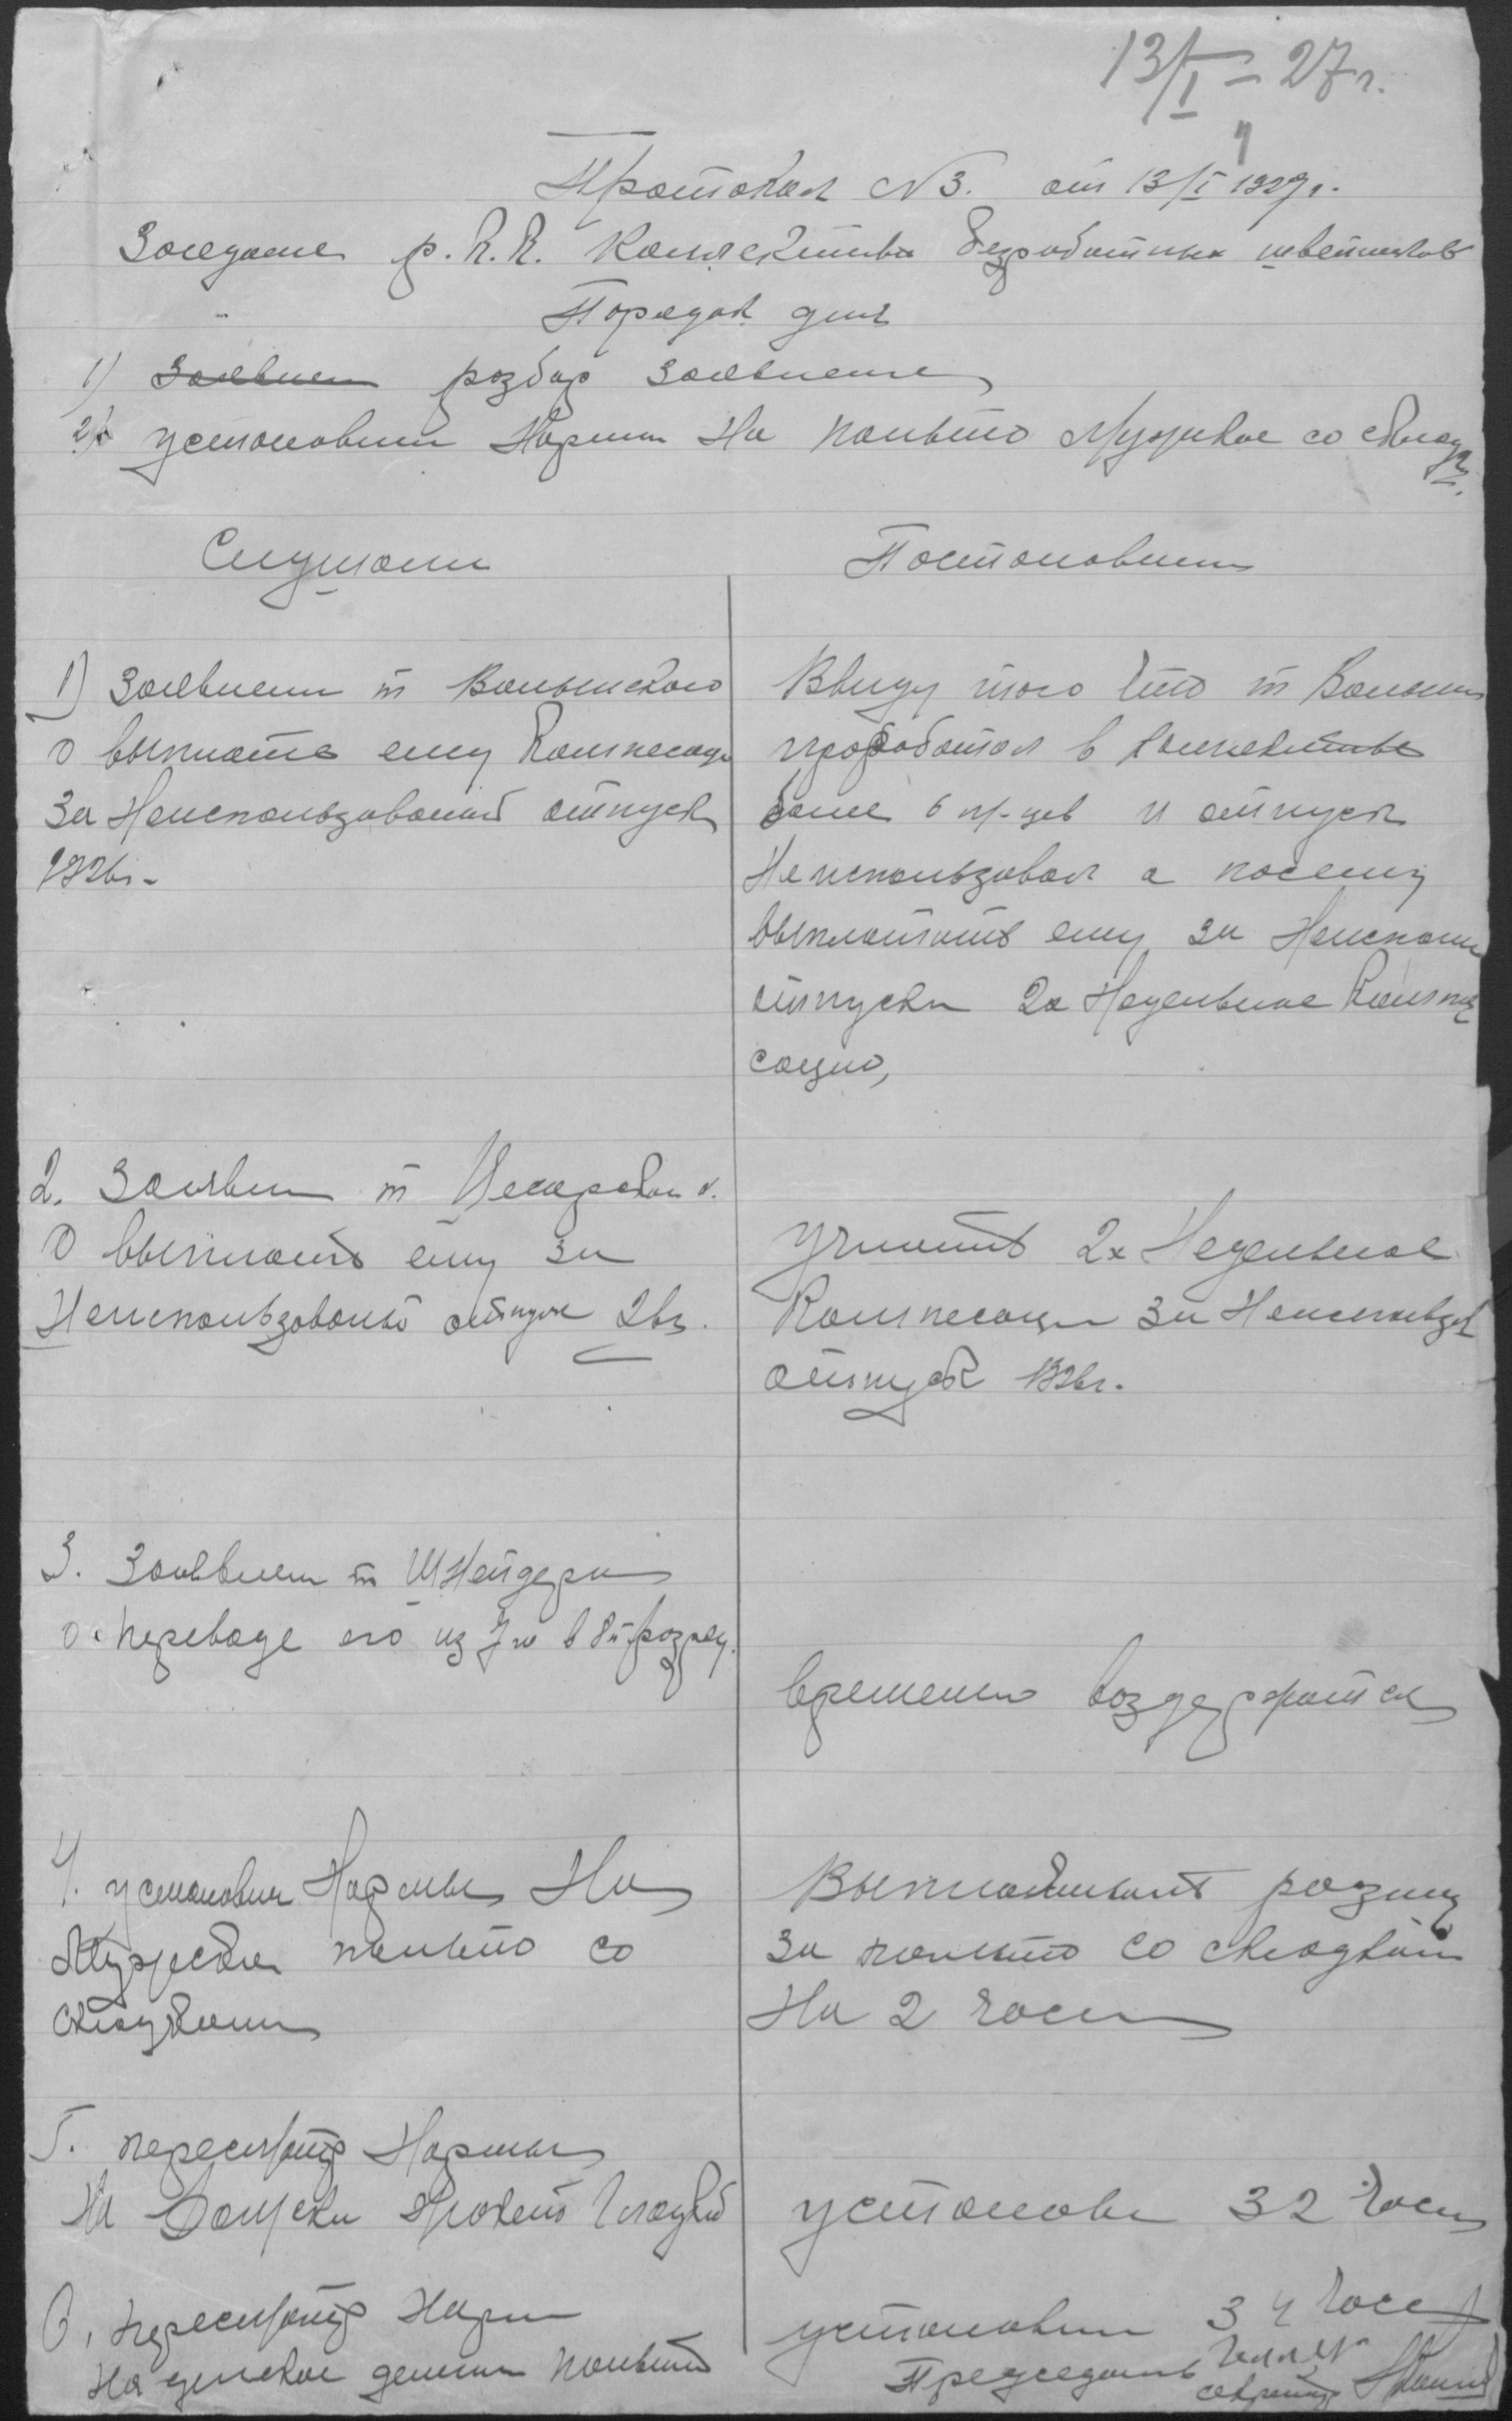 13/I – 27 г.
Протокол N 3. от 13/I 1927 г.
Заседание р.К.К. Коллектива безработных швейников
Порядок дня
1) Заявлен розбор заявление
2) установит Нормы На пальто Мужское со
Слушали
Постоновили
1) Заявлени т Волынского
о выплате ему Компесаци
За Неиспользованый отпуск
1926г.
Ввиду того что т Волын
проработал в коллективе
более 6 м-цев и отпуск
Не использовал а посему
выплотить ему за Неисполь
отпуск 2х Недельное Компе
сацию,
2. Заявлен т
О выплоть ему за
Неиспользованый отпуск 26г.
Уплотить 2х Недельное
Компесаци За Неиспользов
отпуск 1926г.
3. Заявлени т Шнейдера
о переводе его из 7го в 8й розряд.
временно воздержатся
4. установит Нормы На
Мужское пальто со
складками
Выплачивать розниц
за пальто со складками
На 2 часа
5. пересмотр Нормы
На Гладкий
установи 32 часа
6. пересмотр Норм
На детское пальто
установит 34 часа
Председатель
секретарь